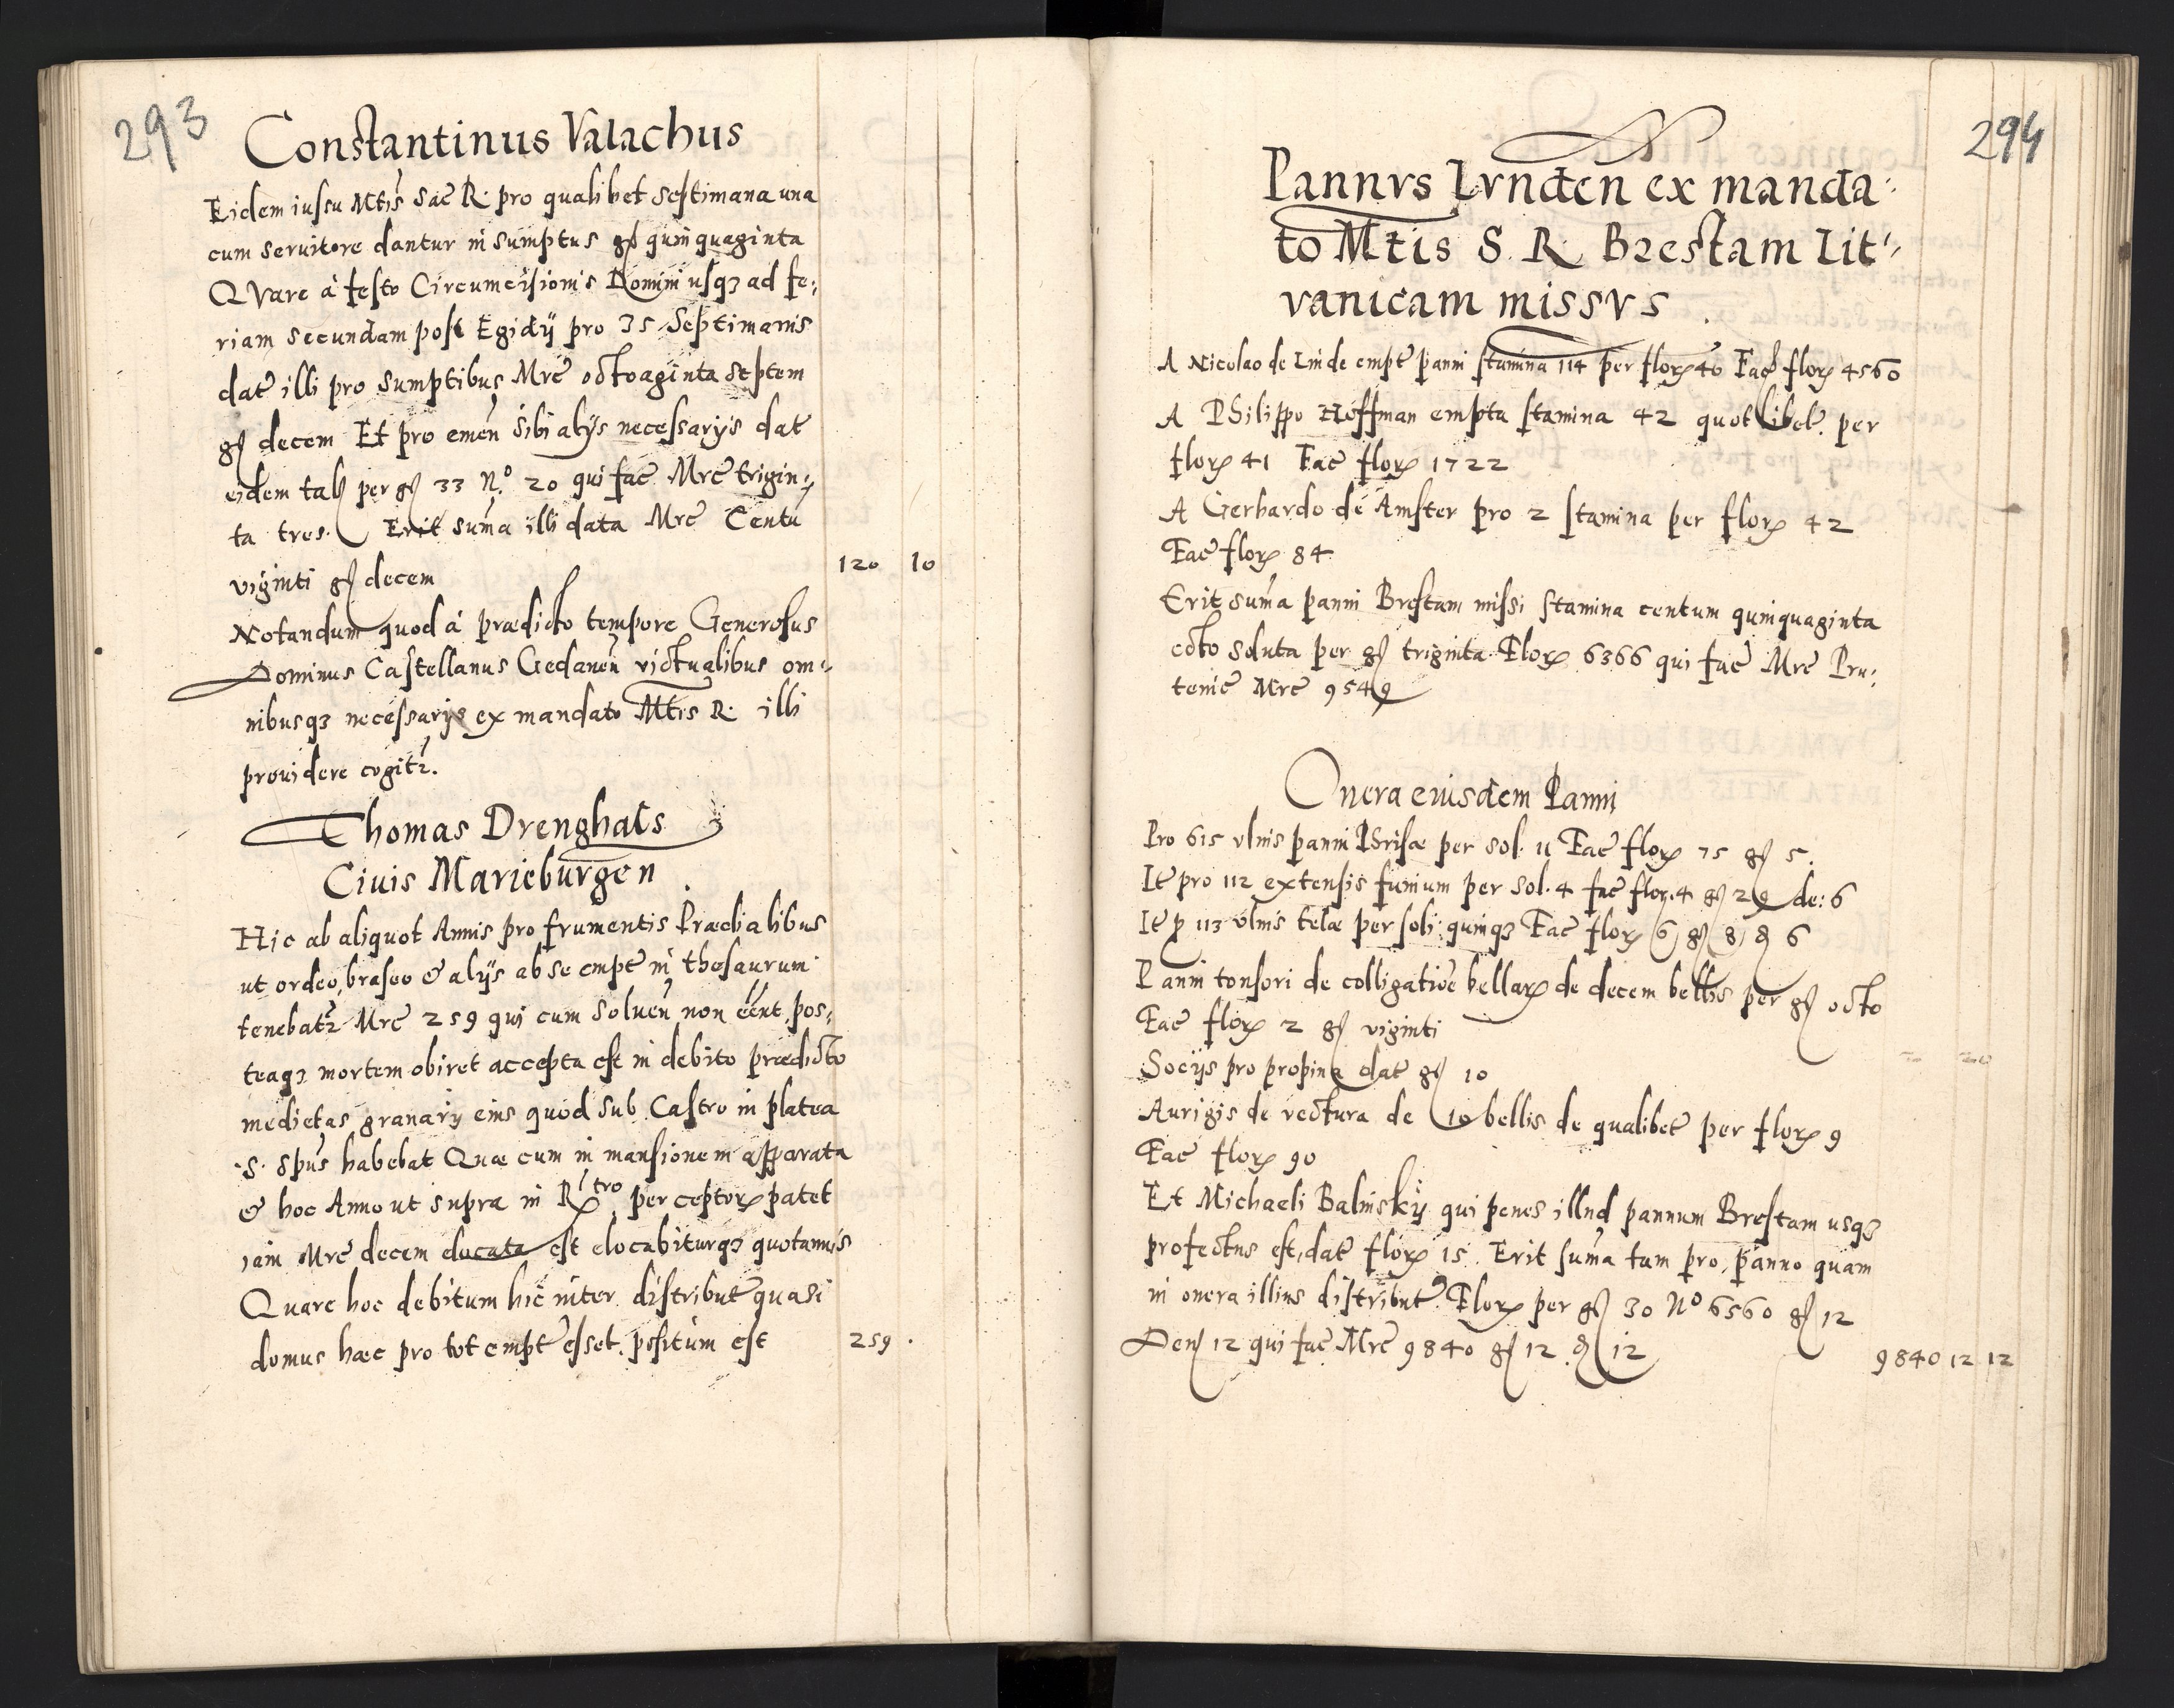 293
Constantinus Valachus
Eidem iussu Mtis Sac R. pro qualibet septimana una
cum seruitore dantur in sumptus gs quinquaginta
QVare à festo Circumcisionis Domini usqz ad fe,
riam secundam post Egidij pro 35 Septimanis
dat illi pro sumptibus Mrc octoaginta septem
gs decem Et pro emen sibi alijs necessarijs dat
eidem tals per gs 33 No. 20 qui fac Mrc trigin,
ta tres. Erit suma illi data Mrc Centu
viginti gs decem 120 10
Notandum quod à prædicto tempore Generosus
Dominus Castellanus Gedanen victualibus om,
nibusqz necessarijs ex mandato Mtis R. illi
prouidere cogitr.
Thomas Drenghats
Ciuis Marieburgen
Hic ab aliquot Annis pro frumentis Prædialibus
ut ordeo, braseo & alijs ab se empt in thesaurum
tenebatr Mrc 259 qui cum soluen non eent, pos,
teaqz mortem obiret accepta est in debito prædicto
medietas granarij eius quod sub Castro in platea
S. Spus habebat Quæ cum in mansionem apparata
& hoc Anno ut supra in Rtro perceptorx patet
iam Mrc decem elocata est elocabiturqz quotannis
Quare hoc debitum hic inter distribut quasi
domus hæc pro tot empt esset, positum est 259.
294
Pannvs Lvnden ex manda,
to Mtis S. R. Brestam Lit,
vanicam missvs
A Nicolao de Linde empt panni stamina 114 per florx 40 Fac florx 4560
A Philippo Hoffman empta stamina 42 quotlibet per
florx 41 Fac florx 1722
A Gerhardo de Amster pro 2 stamina per florx 42
Fac florx 84
Erit suma panni Brestam missi stamina centum quinquaginta
octo soluta per gs triginta Florx 6366 qui fac Mrc Pru,
tenic Mrc 9549
Onera eiusdem Panni
Pro 615 vlnis panni Phrisæ per sol. 11 Fac florx 75 gs 5.
It pro 112 extensis funium per sol. 4 fac flor. 4 gs 29 de: 6
It p 113 vlnis telæ per soli: quinqz Fac florx 6 gs 8, d 6
Panni tonsori de colligatioe bellarx de decem bellis per gs octo
Fac florx 2 gs viginti
Socijs pro propina dat gs 10
Aurigis de vectura de 10 bellis de qualibet per florx 9
Fac florx 90
Et Michaeli Balinskÿ qui penes illud pannum Brestam usqz
profectus est, dat florx 15. Erit suma tam pro, panno quam
in onera illius distribut Florx per gs 30 No 6560 gs 12
Den 12 qui fac Mrc 9840 gs 12 d 12 9840 12 12